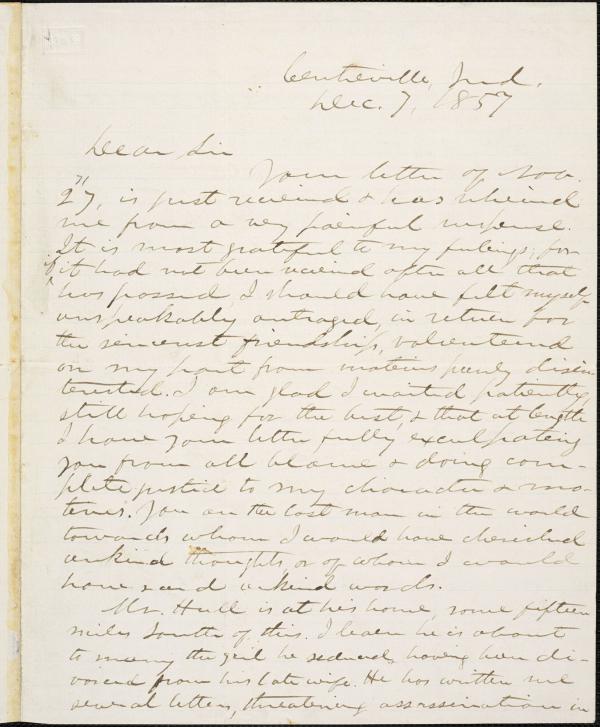 Centreville, Ind.
Dec. 7, 1857
Dear Sir
Your letter of Nov.
27, is just received & has relieved
me from a very painful suspense.
It is most grateful to my feelings, for
if it had not been received after all that
has passed, I should have felt myself
unspeakably outraged, in return for
the sincerest friendship, volunteered
on my part from motives purely disin
terested. I am glad I waited patiently,
still hoping for the best, & that at length
I have your letter fully exculpating
you from all blame & doing com-
plete justice to my character & mo-
tives. You are the last man in the world
towards whom I would have cherished
unkind thoughts, or of whom I would
have said unkind words.
Mr. Hull is at his home, some fifteen
miles South of this. I learn he is about
to marry the girl he seduced, having been di-
vorced from his late wife. He has written me
several letters, threatening assassination in